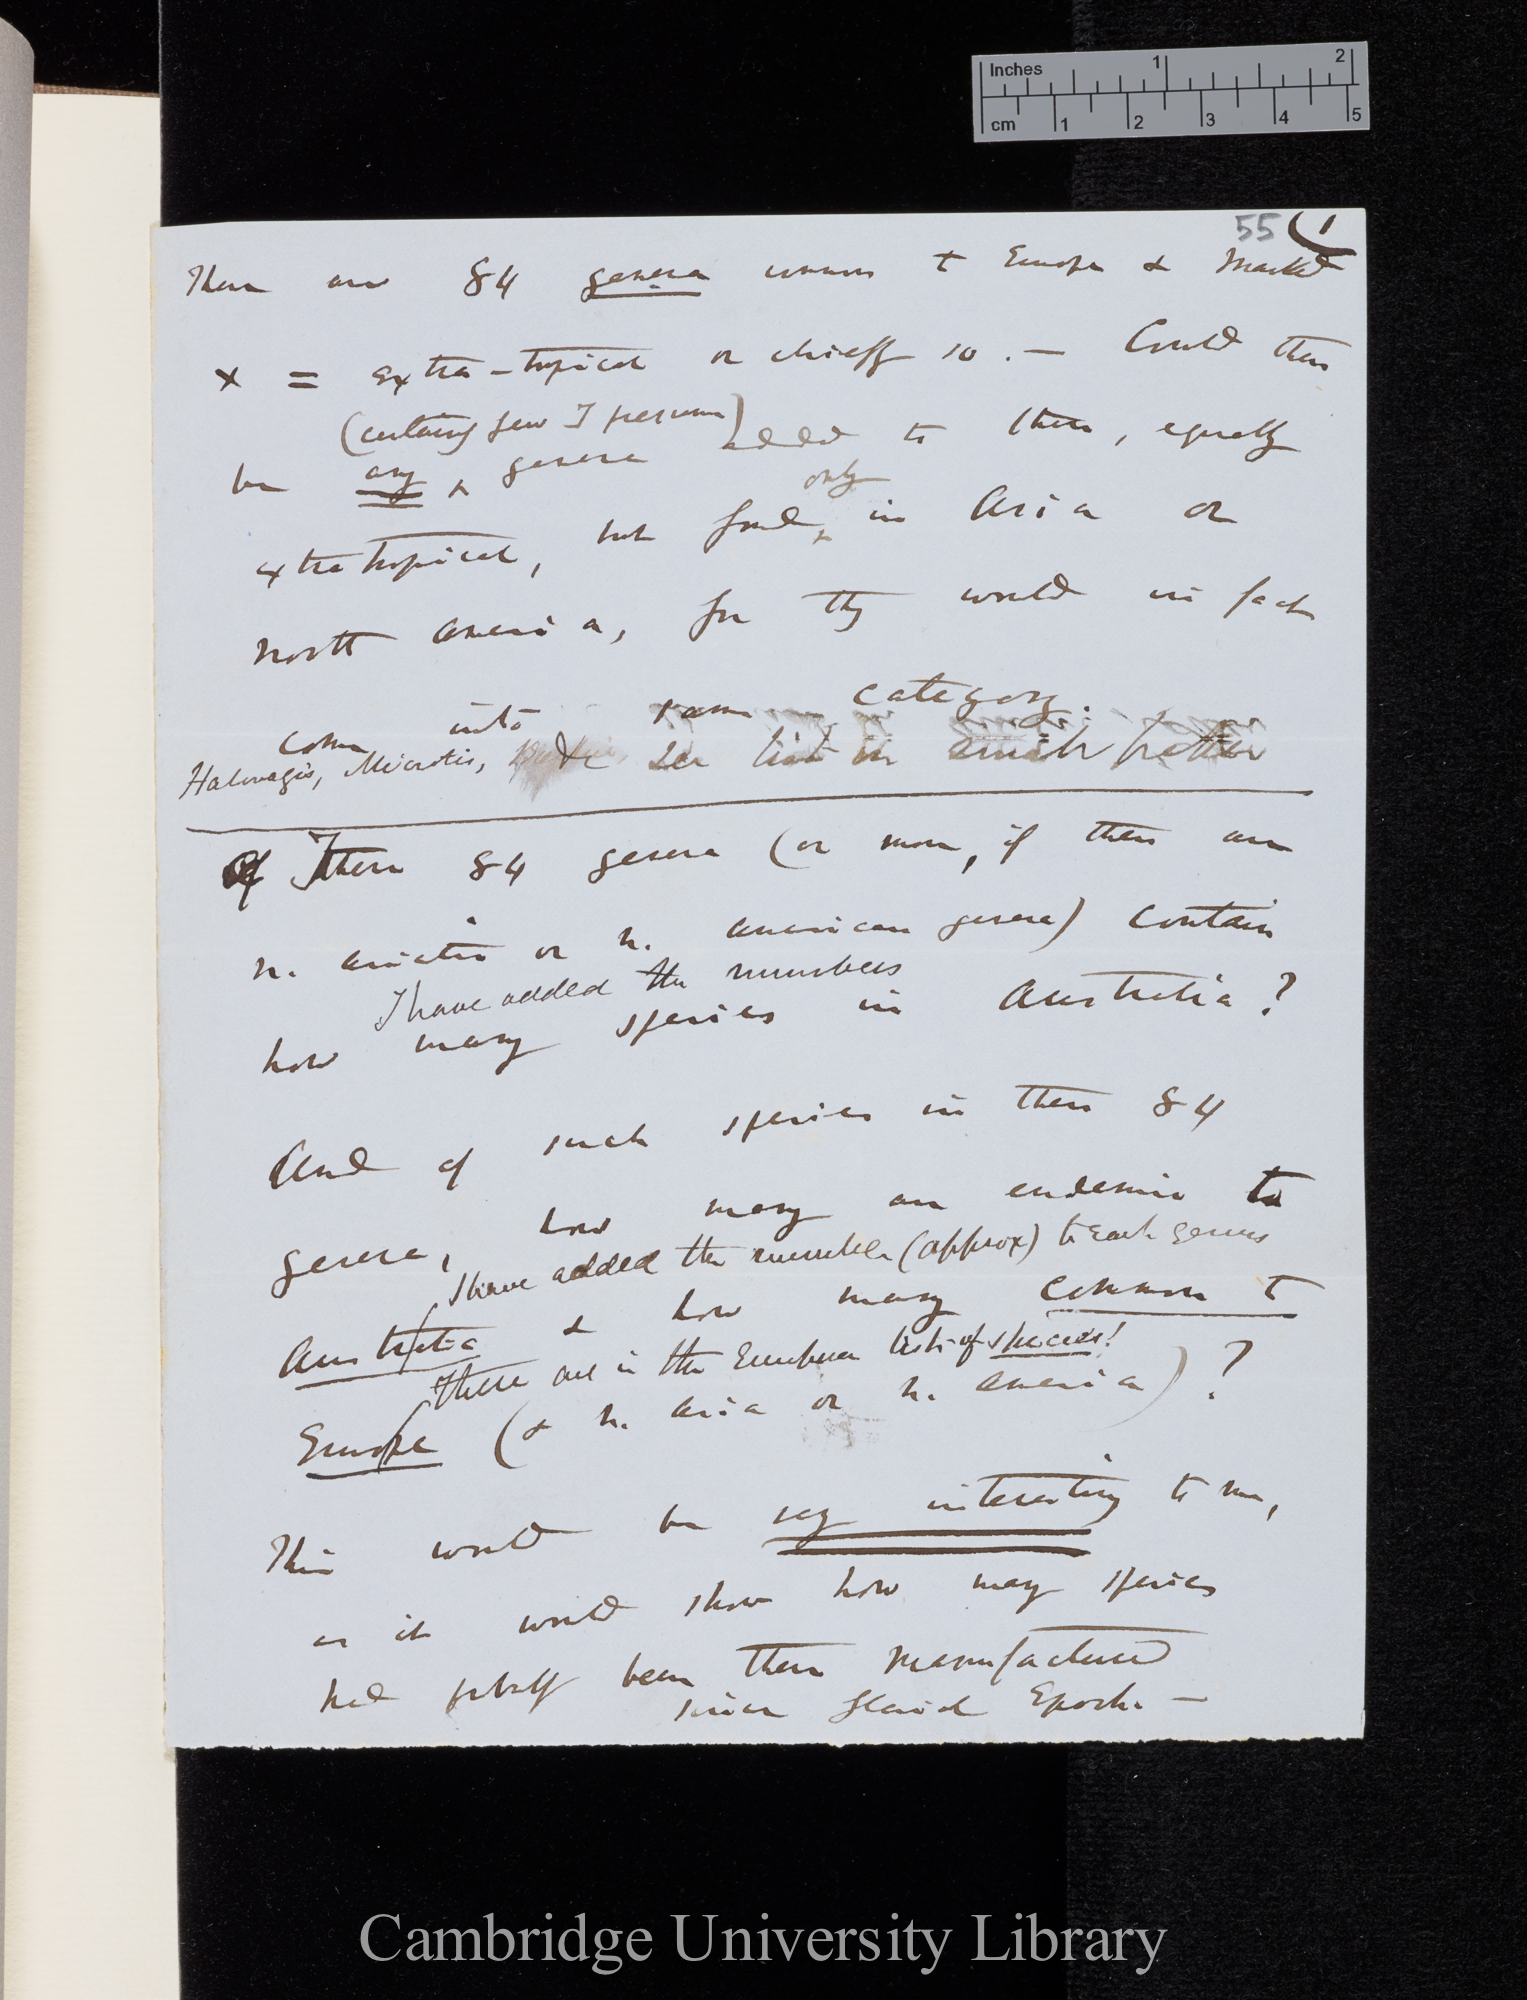 Inches 1 2
cm 1 2 3 4 5
55 (1
There are 84 genera common to Europe & marked
x = extra-tropical or chiefly so. — Could there
(certainly few I presume)
be any x genera added to these, equally
only
extratropical, but found in Asia or
North America, for they would in fact
come into same category.
Haloragis, Microtis, &c see list in
Of These 84 genera (or more, if there are
N. Asiatic or N. American genera) contain
I have added the numbers
how many species in Australia?
And of such species in these 84
genera, how many are endemic to
I have added the number (approx) to each genus
Australia & how many common to
These are in the European list of species!
Europe (& N. Asia or N. America)?
This would be very interesting to me,
as it would show how many species
had probably been there manufactured
since glacial Epoch. —
Cambridge University Library